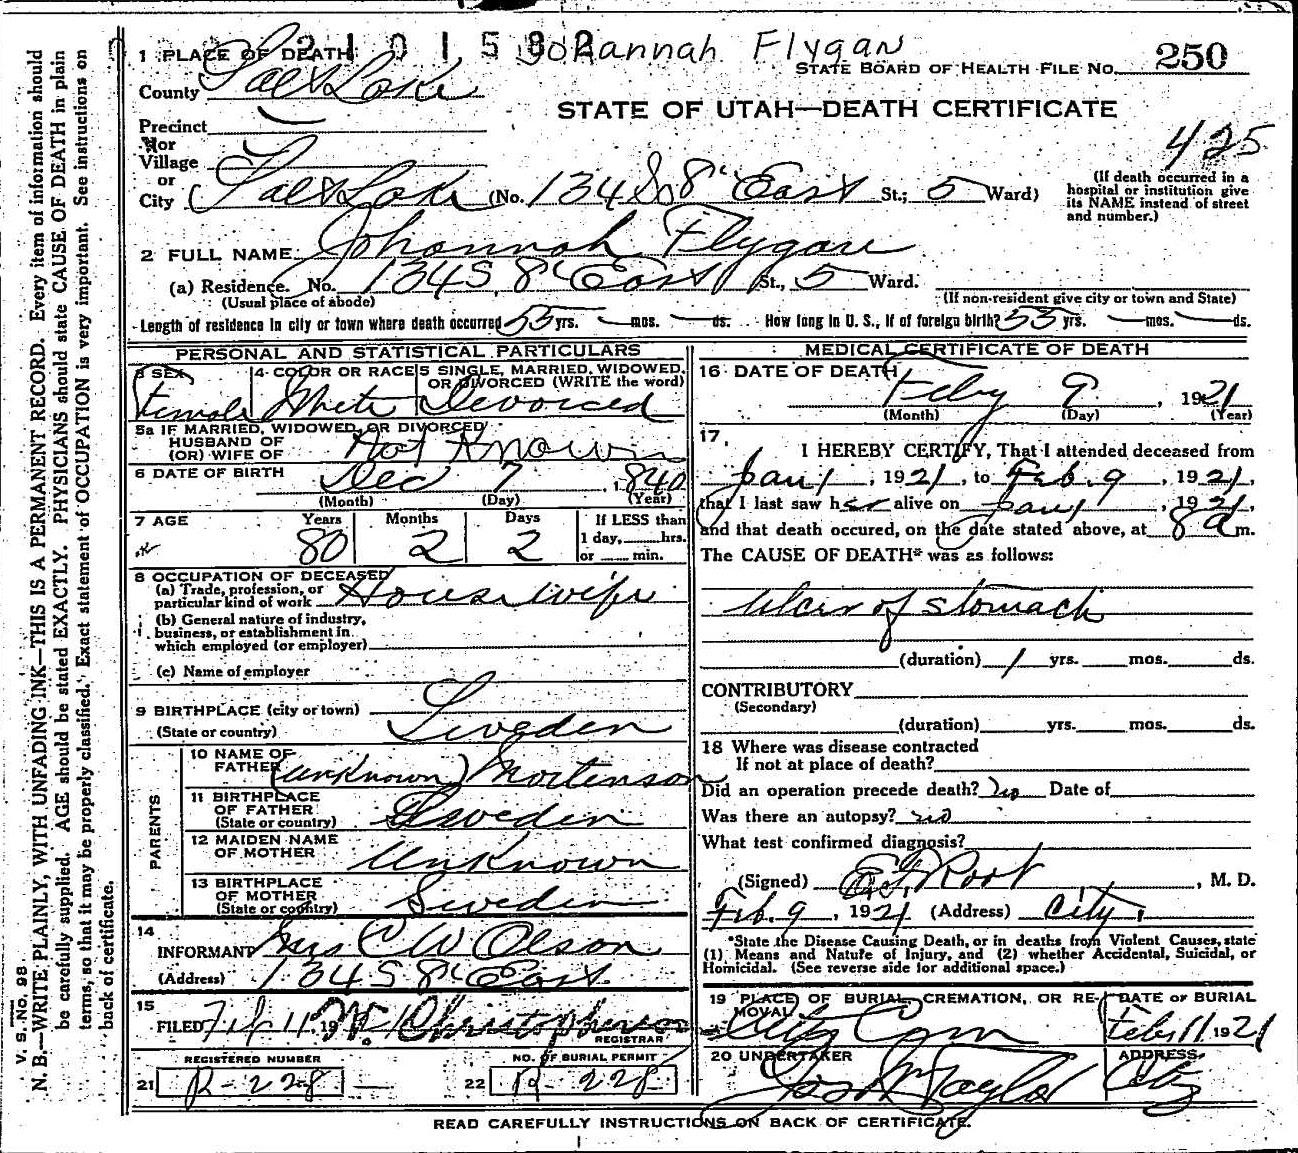 2101582 Johannah Flygan
1 PLACE OF DEATH
STATE BOARD OF HEALTH FILE NO. 250
County Salt Lake
STATE OF UTAH—DEATH CERTIFICATE
Precinct
425
or
Village
or
City Salt Lake (No. 134 So 8" East St.; 5 Ward)
(If death occurred in a hospital or institution give its NAME instead of street and number.)
2 FULL NAME Johannah Flygare
(a) Residence. No. 134 S. 8" East St., 5 Ward.
(Usual place of abode)
(If non-resident give city or town and State)
Length of residence in city or town where death occurred 55 yrs. — mos. — ds. How long in U. S., if of foreign birth? 55 yrs. — mos. — ds.
PERSONAL AND STATISTICAL PARTICULARS
3 SEX Female
4 COLOR OR RACE White
5 SINGLE, MARRIED, WIDOWED, OR DIVORCED (WRITE the word) Devorced
5a IF MARRIED, WIDOWED, OR DIVORCED
HUSBAND OF
(OR) WIFE OF Not Known
6 DATE OF BIRTH Dec 7, 1840
(Month) (Day) (Year)
7 AGE Years 80 Months 2 Days 2
If LESS than
1 day, hrs.
or min.
8 OCCUPATION OF DECEASED
(a) Trade, profession, or
particular kind of work Housewife
(b) General nature of industry,
business, or establishment in
which employed (or employer)
(c) Name of employer
9 BIRTHPLACE (city or town)
(State or country) Sweden
PARENTS
10 NAME OF
FATHER (unknown) Mortenson
11 BIRTHPLACE
OF FATHER
(State or country) Sweden
12 MAIDEN NAME
OF MOTHER Unknown
13 BIRTHPLACE
OF MOTHER
(State or country) Sweden
14
INFORMANT Mrs C W Olson
(Address) 134 S 8" East
15
FILED Feb 11, 19 Christopherson
REGISTRAR
REGISTERED NUMBER
21 R-228 —
NO. OF BURIAL PERMIT
22 R-228
MEDICAL CERTIFICATE OF DEATH
16 DATE OF DEATH
Feby 9, 1921
(Month) (Day) (Year)
17
I HEREBY CERTIFY, That I attended deceased from
Jan 1, 1921, to Feb. 9, 1921,
that I last saw her alive on Jan 1, 1921,
and that death occured, on the date stated above, at 8 a m.
The CAUSE OF DEATH* was as follows:
Ulcer of stomach
(duration) 1 yrs. mos. ds.
CONTRIBUTORY
(Secondary)
(duration) yrs. mos. ds.
18 Where was disease contracted
If not at place of death?
Did an operation precede death? no Date of
Was there an autopsy? no
What test confirmed diagnosis?
(Signed) Root, M. D.
Feb. 9, 1921 (Address) City
*State the Disease Causing Death, or in deaths from Violent Causes, state
(1) Means and Nature of Injury, and (2) whether Accidental, Suicidal, or
Homicidal. (See reverse side for additional space.)
19 PLACE OF BURIAL, CREMATION, OR REMOVAL City Cem
DATE OF BURIAL Feb 11 1921
20 UNDERTAKER Jos Wm Taylor
ADDRESS City
READ CAREFULLY INSTRUCTIONS ON BACK OF CERTIFICATE.
V. S. No. 98
N. B.—WRITE PLAINLY, WITH UNFADING INK—THIS IS A PERMANENT RECORD. Every item of information should
be carefully supplied. AGE should be stated EXACTLY. PHYSICIANS should state CAUSE OF DEATH in plain
terms, so that it may be properly classified. Exact statement of OCCUPATION is very important. See instructions on
back of certificate.